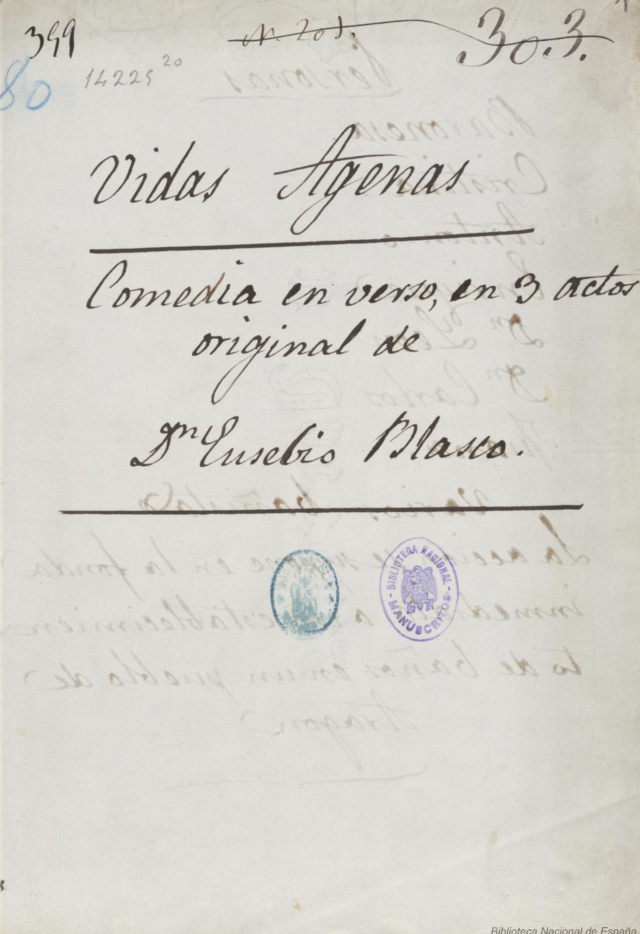 399
N. 201.
303.
14225 20
80
Vidas Agenas
Comedia en verso, en 3 actos
original de
Dn Eusebio Blasco.
BIBLIOTECA NACIONAL
MANUSCRITOS
Biblioteca Nacional de España